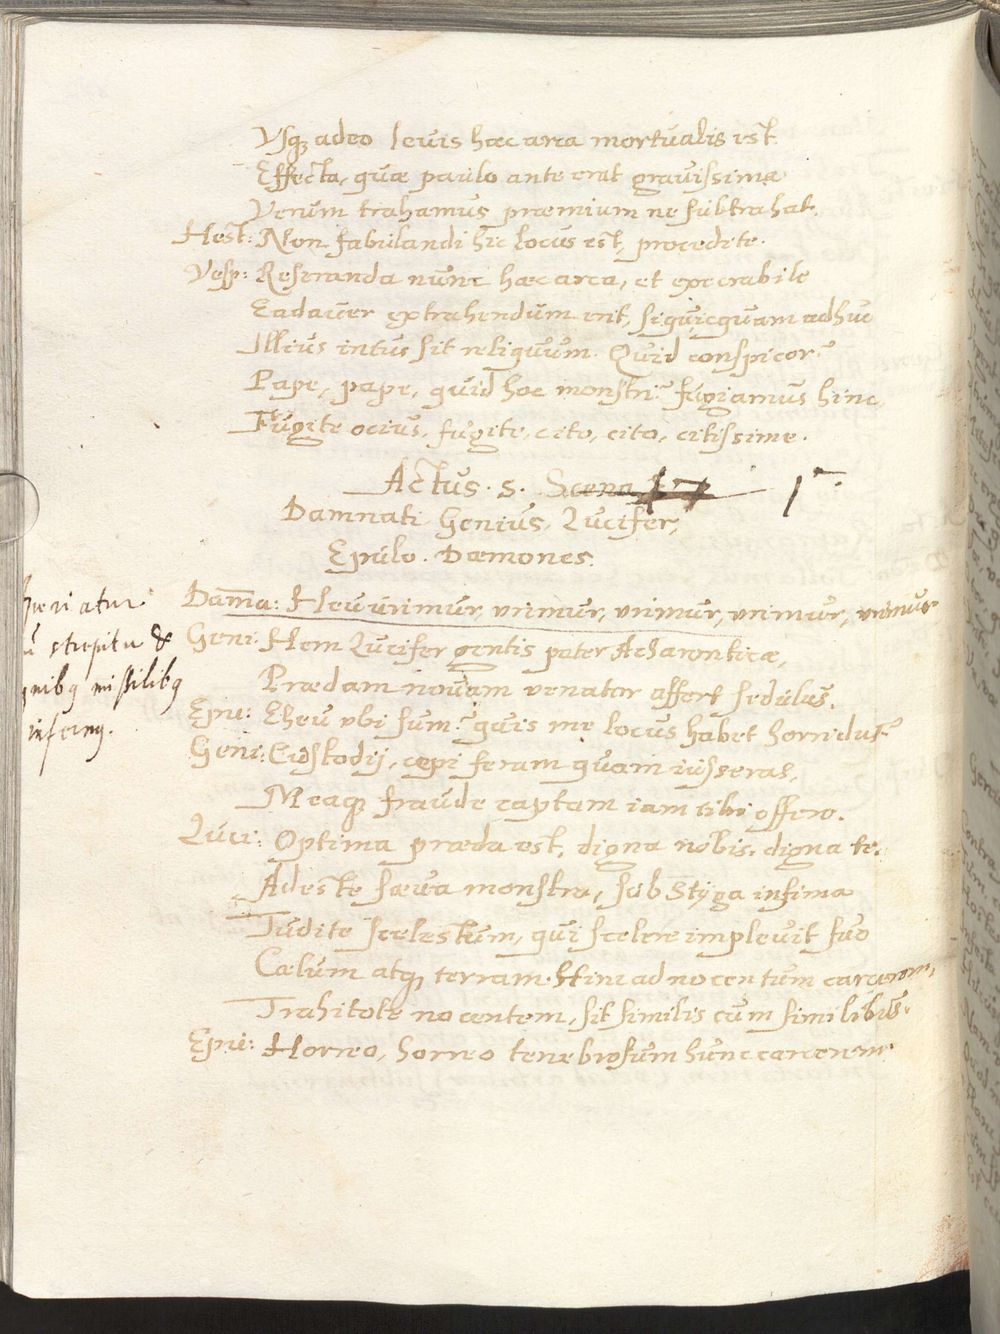 Vsq; adeo levis hæc arca mortualis est
Effecta, quæ paulo ante erat gravissima
Verum trahamus præmium ne subtrahat.
Hest: Non fabulandi hic locus est, procedite.
Vesp: Reseranda nunc hæc arca, et execrabile
Cadaver extrahendum erit, siquicquam adhuc
Illius intus sit reliquum. Quid conspicor?
Pape, pape, quid hoc monstri? fugiamus hinc
Fugite ocius, fugite, cito, cito, citissime.
Actus. 5. Scena 1.
Damnati. Genius. Lucifer,
Epulo. Dæmones.
Dam̄a: Heu urimur, urimur, urimur, urimur, urimur
Geni: Hem Lucifer gentis pater Acharonticæ,
Prædam novam venator affert sedulus.
Epu: Eheu ubi sum? quis me locus habet horridus?
Geni: Custodij, cepi feram quam iusseras,
Meaq; fraude captam iam tibi offero.
Luci: Optima præda est, digna nobis, digna te.
Adeste sæva monstra, sub Styga infima
Tudite scelestum, qui scelere implevit suo
Cælum atq; terram. Hinc ad nocentum carcerem,
Trahitote nocentem, sit similis cum similibus.
Epu: Horreo, horreo tenebrosum hunc carcerem.
strepitu &
missilibq